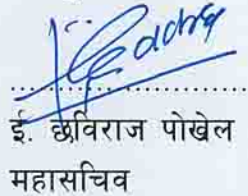 ई. छविराज पोखेल
महासचिव